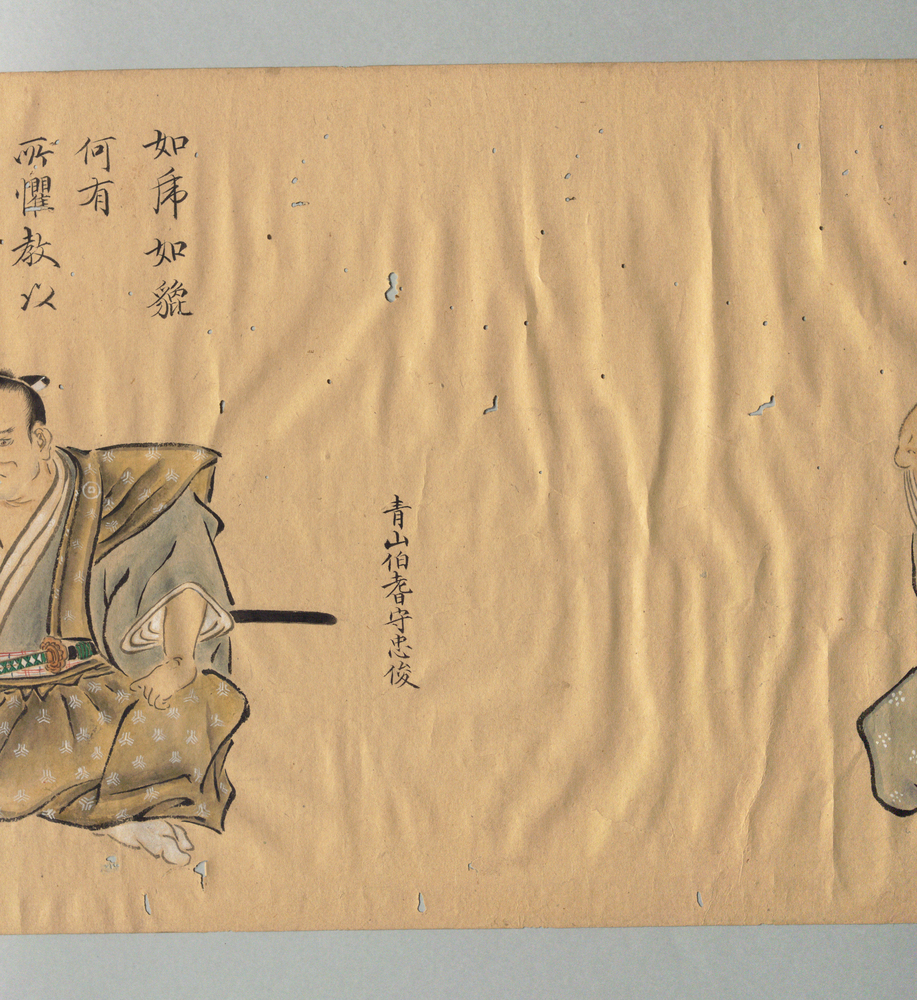 青山伯耆守忠俊
如虎如貔
何有
所懼教以